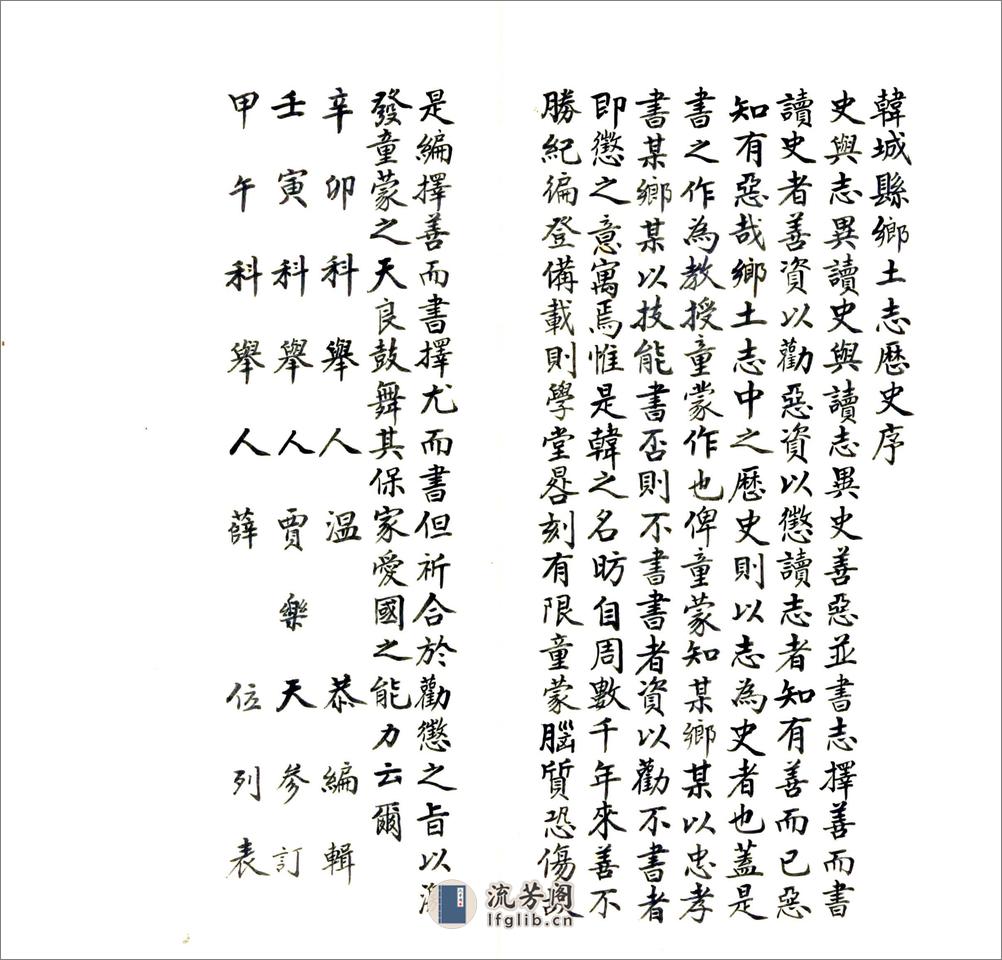 韓城縣鄉土志歷史序
史與志異讀史與讀志異史善惡並書志擇善而書
讀史者善資以勸惡資以懲讀志者知有善而已惡
知有惡哉鄉土志中之歷史則以志為史者也蓋是
書之作為教授童蒙作也俾童蒙知某鄉某以忠孝
書某鄉某以技能書否則不書書者資以勸不書者
即懲之意寓焉惟是韓之名昉自周數千年來善不
勝紀編登備載則學堂晷刻有限童蒙腦質恐傷
是編擇善而書擇尤而書但祈合於勸懲之旨以
發童蒙之天良鼓舞其保家愛國之能力云爾
辛卯科舉人溫恭編輯
壬寅科舉人賈樂天參訂
甲午科舉人薛位列表
流芳阁
lfglib.cn